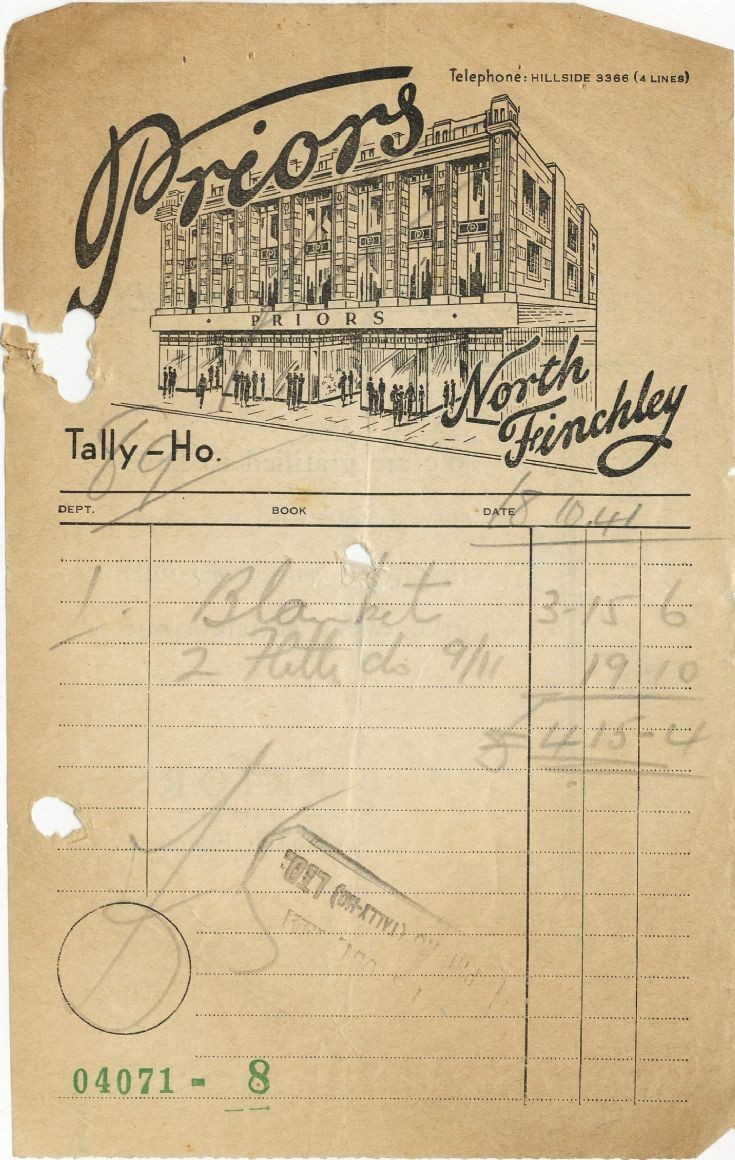 Telephone: HILLSIDE 3366 (4 LINES)
Priors
· PRIORS ·
North
Finchley
Tally-Ho.
69
DEPT. BOOK DATE 18.10.41
1. Blanket 3-15 6
2 do 9/11 19-10
£ 4 15-4
(TALLY-HO) LTD.
04071 - 8